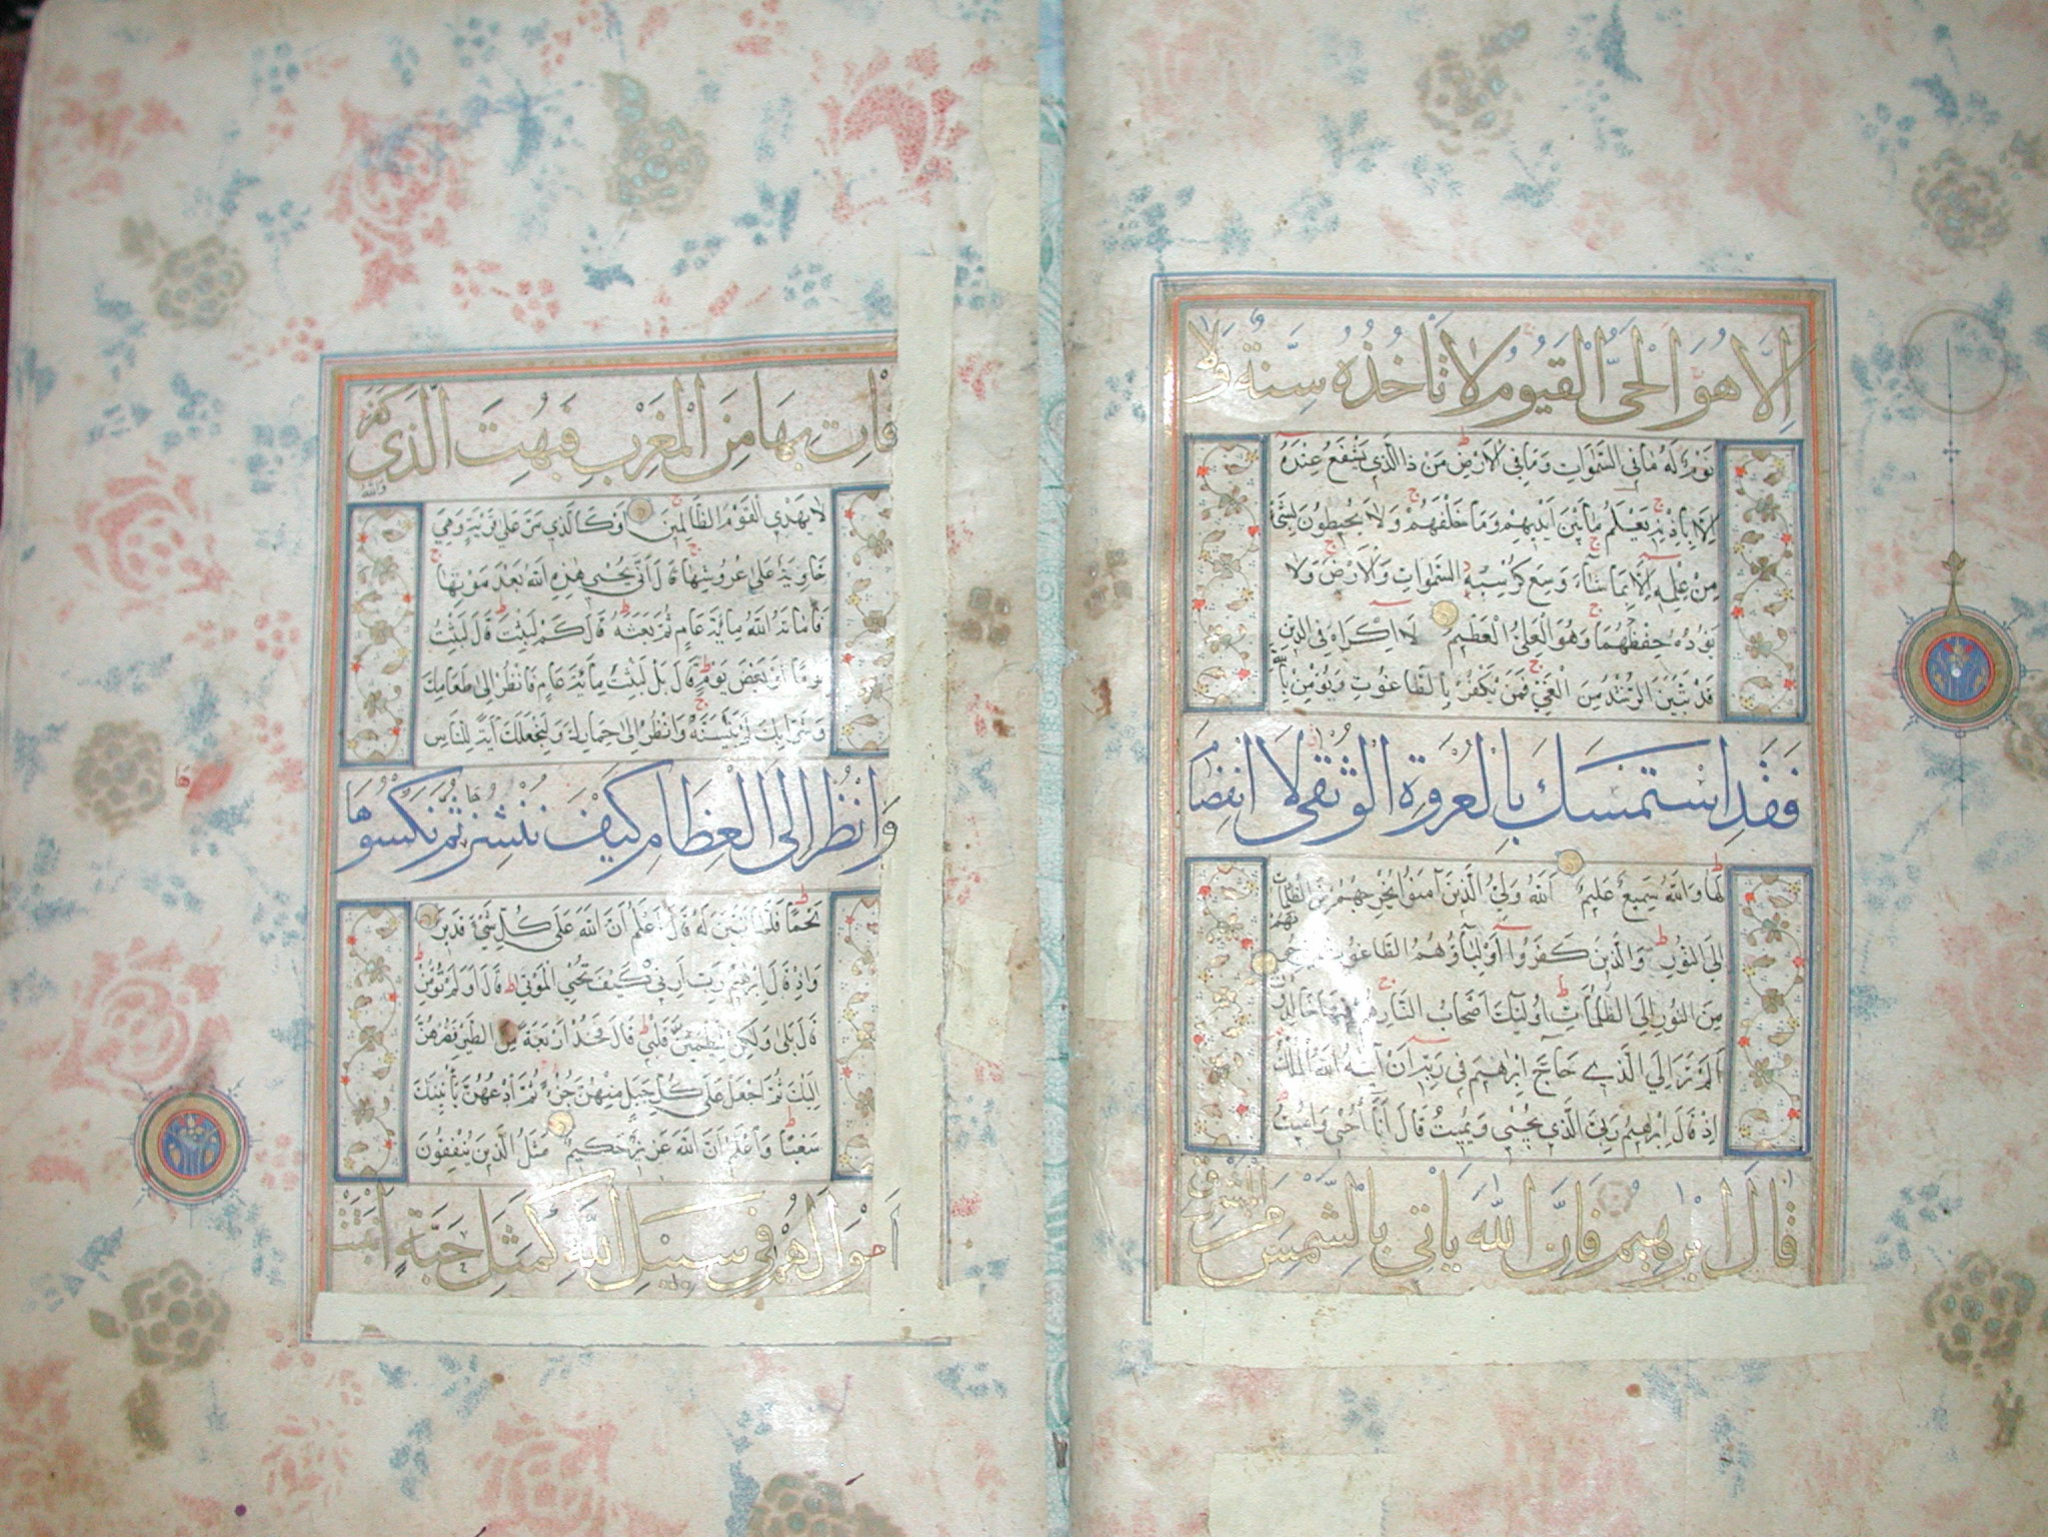 إِلَّا هُوَ الْحَيُّ الْقَيُّومُ لَا تَأْخُذُهُ سِنَةٌ وَلَا
نَوْمٌ لَهُ مَا فِي السَّمٰوَاتِ وَمَا فِي الْاَرْضِ مَنْ ذَا الَّذِي يَشْفَعُ عِنْدَهُ
اِلَّا بِاِذْنِهِ يَعْلَمُ مَا بَيْنَ اَيْدِيهِمْ وَمَا خَلْفَهُمْ وَلَا يُحِيطُونَ بِشَيْءٍ
مِنْ عِلْمِهِ اِلَّا بِمَا شَاءَ وَسِعَ كُرْسِيُّهُ السَّمٰوَاتِ وَالْاَرْضَ وَلَا
يَؤُدُهُ حِفْظُهُمَا وَهُوَ الْعَلِيُّ الْعَظِيمُ لَا اِكْرَاهَ فِي الدِّينِ
قَدْ تَبَيَّنَ الرُّشْدُ مِنَ الْغَيِّ فَمَنْ يَكْفُرْ بِالطَّاغُوتِ وَيُؤْمِنْ بِاللّٰهِ
فَقَدِ اسْتَمْسَكَ بِالْعُرْوَةِ الْوُثْقٰى لَا انْفِصَامَ
لَهَا وَاللّٰهُ سَمِيعٌ عَلِيمٌ اَللّٰهُ وَلِيُّ الَّذِينَ آمَنُوا يُخْرِجُهُمْ مِنَ الظُّلُمَاتِ
اِلَى النُّورِ وَالَّذِينَ كَفَرُوا اَوْلِيَاؤُهُمُ الطَّاغُوتُ يُخْرِجُونَهُمْ
مِنَ النُّورِ اِلَى الظُّلُمَاتِ اُولٰئِكَ اَصْحَابُ النَّارِ هُمْ فِيهَا خَالِدُونَ
اَلَمْ تَرَ اِلَى الَّذِي حَاجَّ اِبْرٰهِيمَ فِي رَبِّهِ اَنْ آتٰيهُ اللّٰهُ الْمُلْكَ
اِذْ قَالَ اِبْرٰهِيمُ رَبِّيَ الَّذِي يُحْيِي وَيُمِيتُ قَالَ اَنَا اُحْيِي وَاُمِيتُ
قَالَ اِبْرٰهِيمُ فَاِنَّ اللّٰهَ يَأْتِي بِالشَّمْسِ مِنَ الْمَشْرِقِ
فَأْتِ بِهَا مِنَ الْمَغْرِبِ فَبُهِتَ الَّذِي كَفَرَ وَاللّٰهُ
لَا يَهْدِي الْقَوْمَ الظَّالِمِينَ اَوْ كَالَّذِي مَرَّ عَلٰى قَرْيَةٍ وَهِيَ
خَاوِيَةٌ عَلٰى عُرُوشِهَا قَالَ اَنّٰى يُحْيِي هٰذِهِ اللّٰهُ بَعْدَ مَوْتِهَا
فَاَمَاتَهُ اللّٰهُ مِائَةَ عَامٍ ثُمَّ بَعَثَهُ قَالَ كَمْ لَبِثْتَ قَالَ لَبِثْتُ
يَوْمًا اَوْ بَعْضَ يَوْمٍ قَالَ بَلْ لَبِثْتَ مِائَةَ عَامٍ فَانْظُرْ اِلٰى طَعَامِكَ
وَشَرَابِكَ لَمْ يَتَسَنَّهْ وَانْظُرْ اِلٰى حِمَارِكَ وَلِنَجْعَلَكَ آيَةً لِلنَّاسِ
وَانْظُرْ اِلَى الْعِظَامِ كَيْفَ نُنْشِزُهَا ثُمَّ نَكْسُوهَا
لَحْمًا فَلَمَّا تَبَيَّنَ لَهُ قَالَ اَعْلَمُ اَنَّ اللّٰهَ عَلٰى كُلِّ شَيْءٍ قَدِيرٌ
وَاِذْ قَالَ اِبْرٰهِيمُ رَبِّ اَرِنِي كَيْفَ تُحْيِي الْمَوْتٰى قَالَ اَوَلَمْ تُؤْمِنْ
قَالَ بَلٰى وَلٰكِنْ لِيَطْمَئِنَّ قَلْبِي قَالَ فَخُذْ اَرْبَعَةً مِنَ الطَّيْرِ فَصُرْهُنَّ
اِلَيْكَ ثُمَّ اجْعَلْ عَلٰى كُلِّ جَبَلٍ مِنْهُنَّ جُزْءًا ثُمَّ ادْعُهُنَّ يَأْتِينَكَ
سَعْيًا وَاعْلَمْ اَنَّ اللّٰهَ عَزِيزٌ حَكِيمٌ مَثَلُ الَّذِينَ يُنْفِقُونَ
اَمْوَالَهُمْ فِي سَبِيلِ اللّٰهِ كَمَثَلِ حَبَّةٍ اَنْبَتَتْ